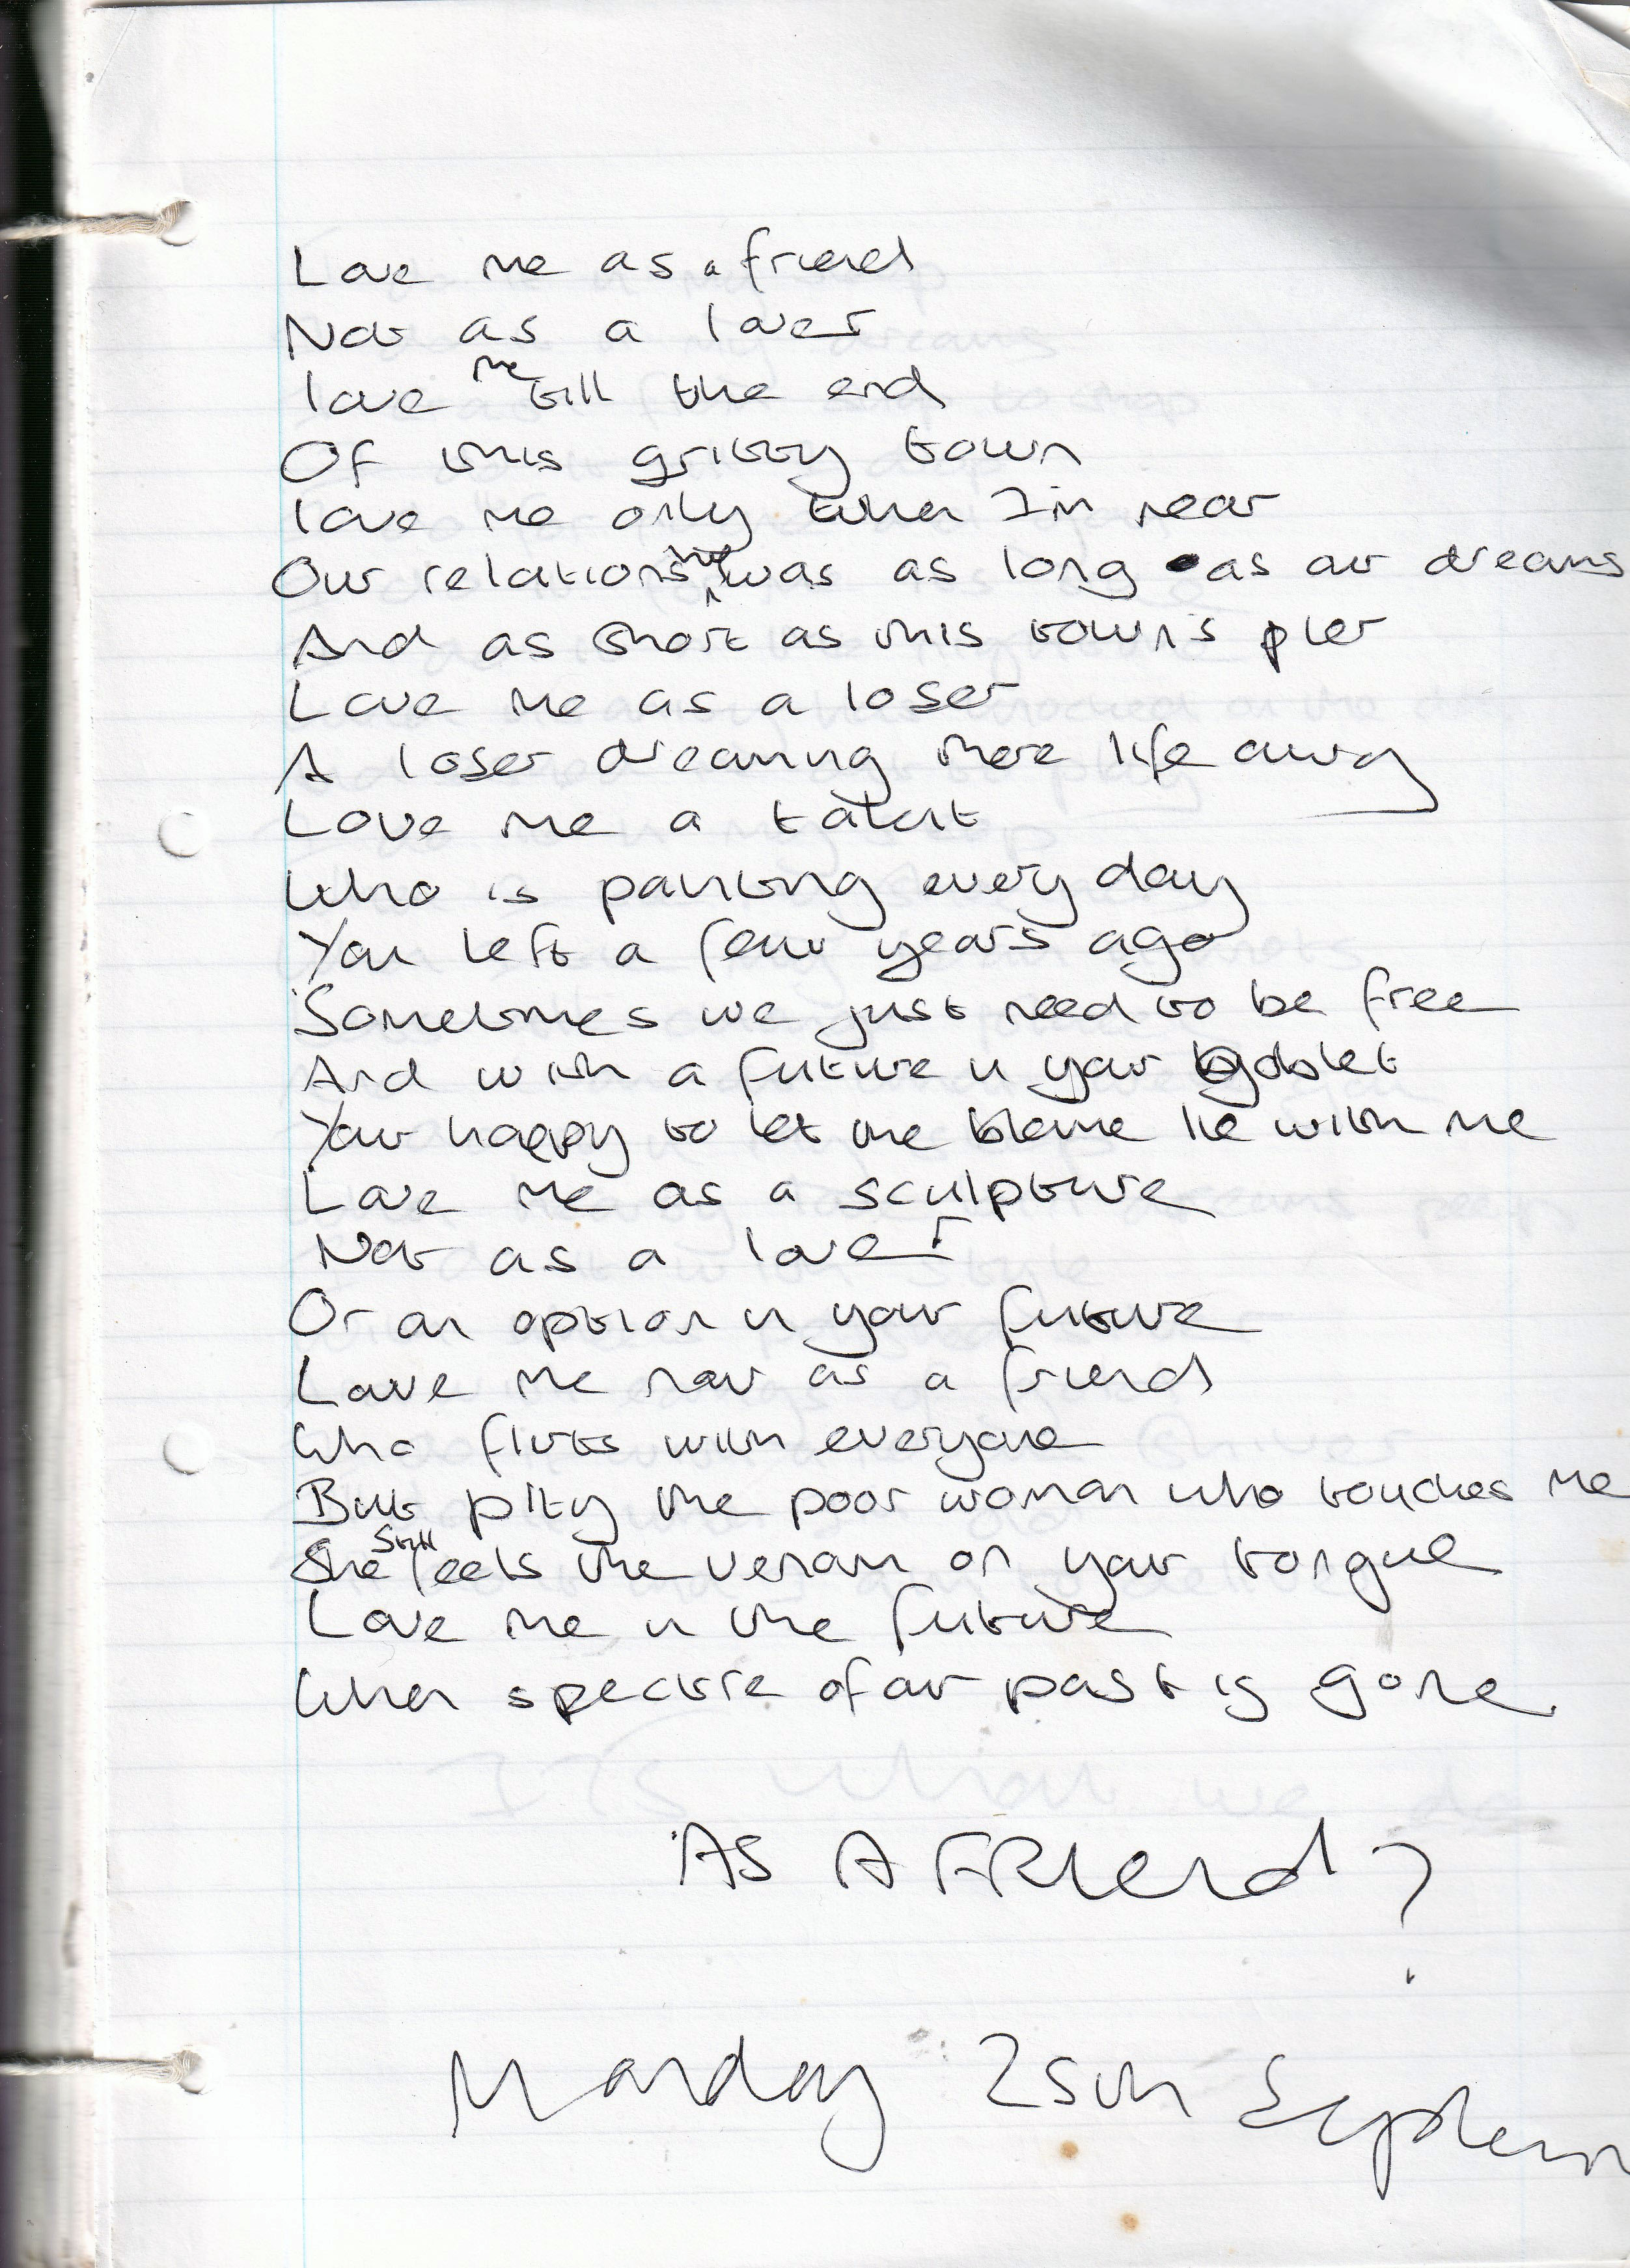 Love me as a friend
Not as a lover
love me till the end
Of this gritty town
love me only when Im near
Our relationship was as long as our dreams
And as short as this town's pier
Love me as a loser
A loser dreaming there life away
Love me a talent
Who is painting every day
You left a few years ago
Sometimes we just need to be free
And with a future in your goblet
Your happy to let the blame lie with me
Love me as a sculpture
Not as a lover
Or an option in your future
Love me now as a friend
Who flirts with everyone
But pity the poor woman who touches me
She still feels the venom on your tongue
Love me in the future
When spectre of our past is gone
AS A FRIend?
Monday 25th Septem